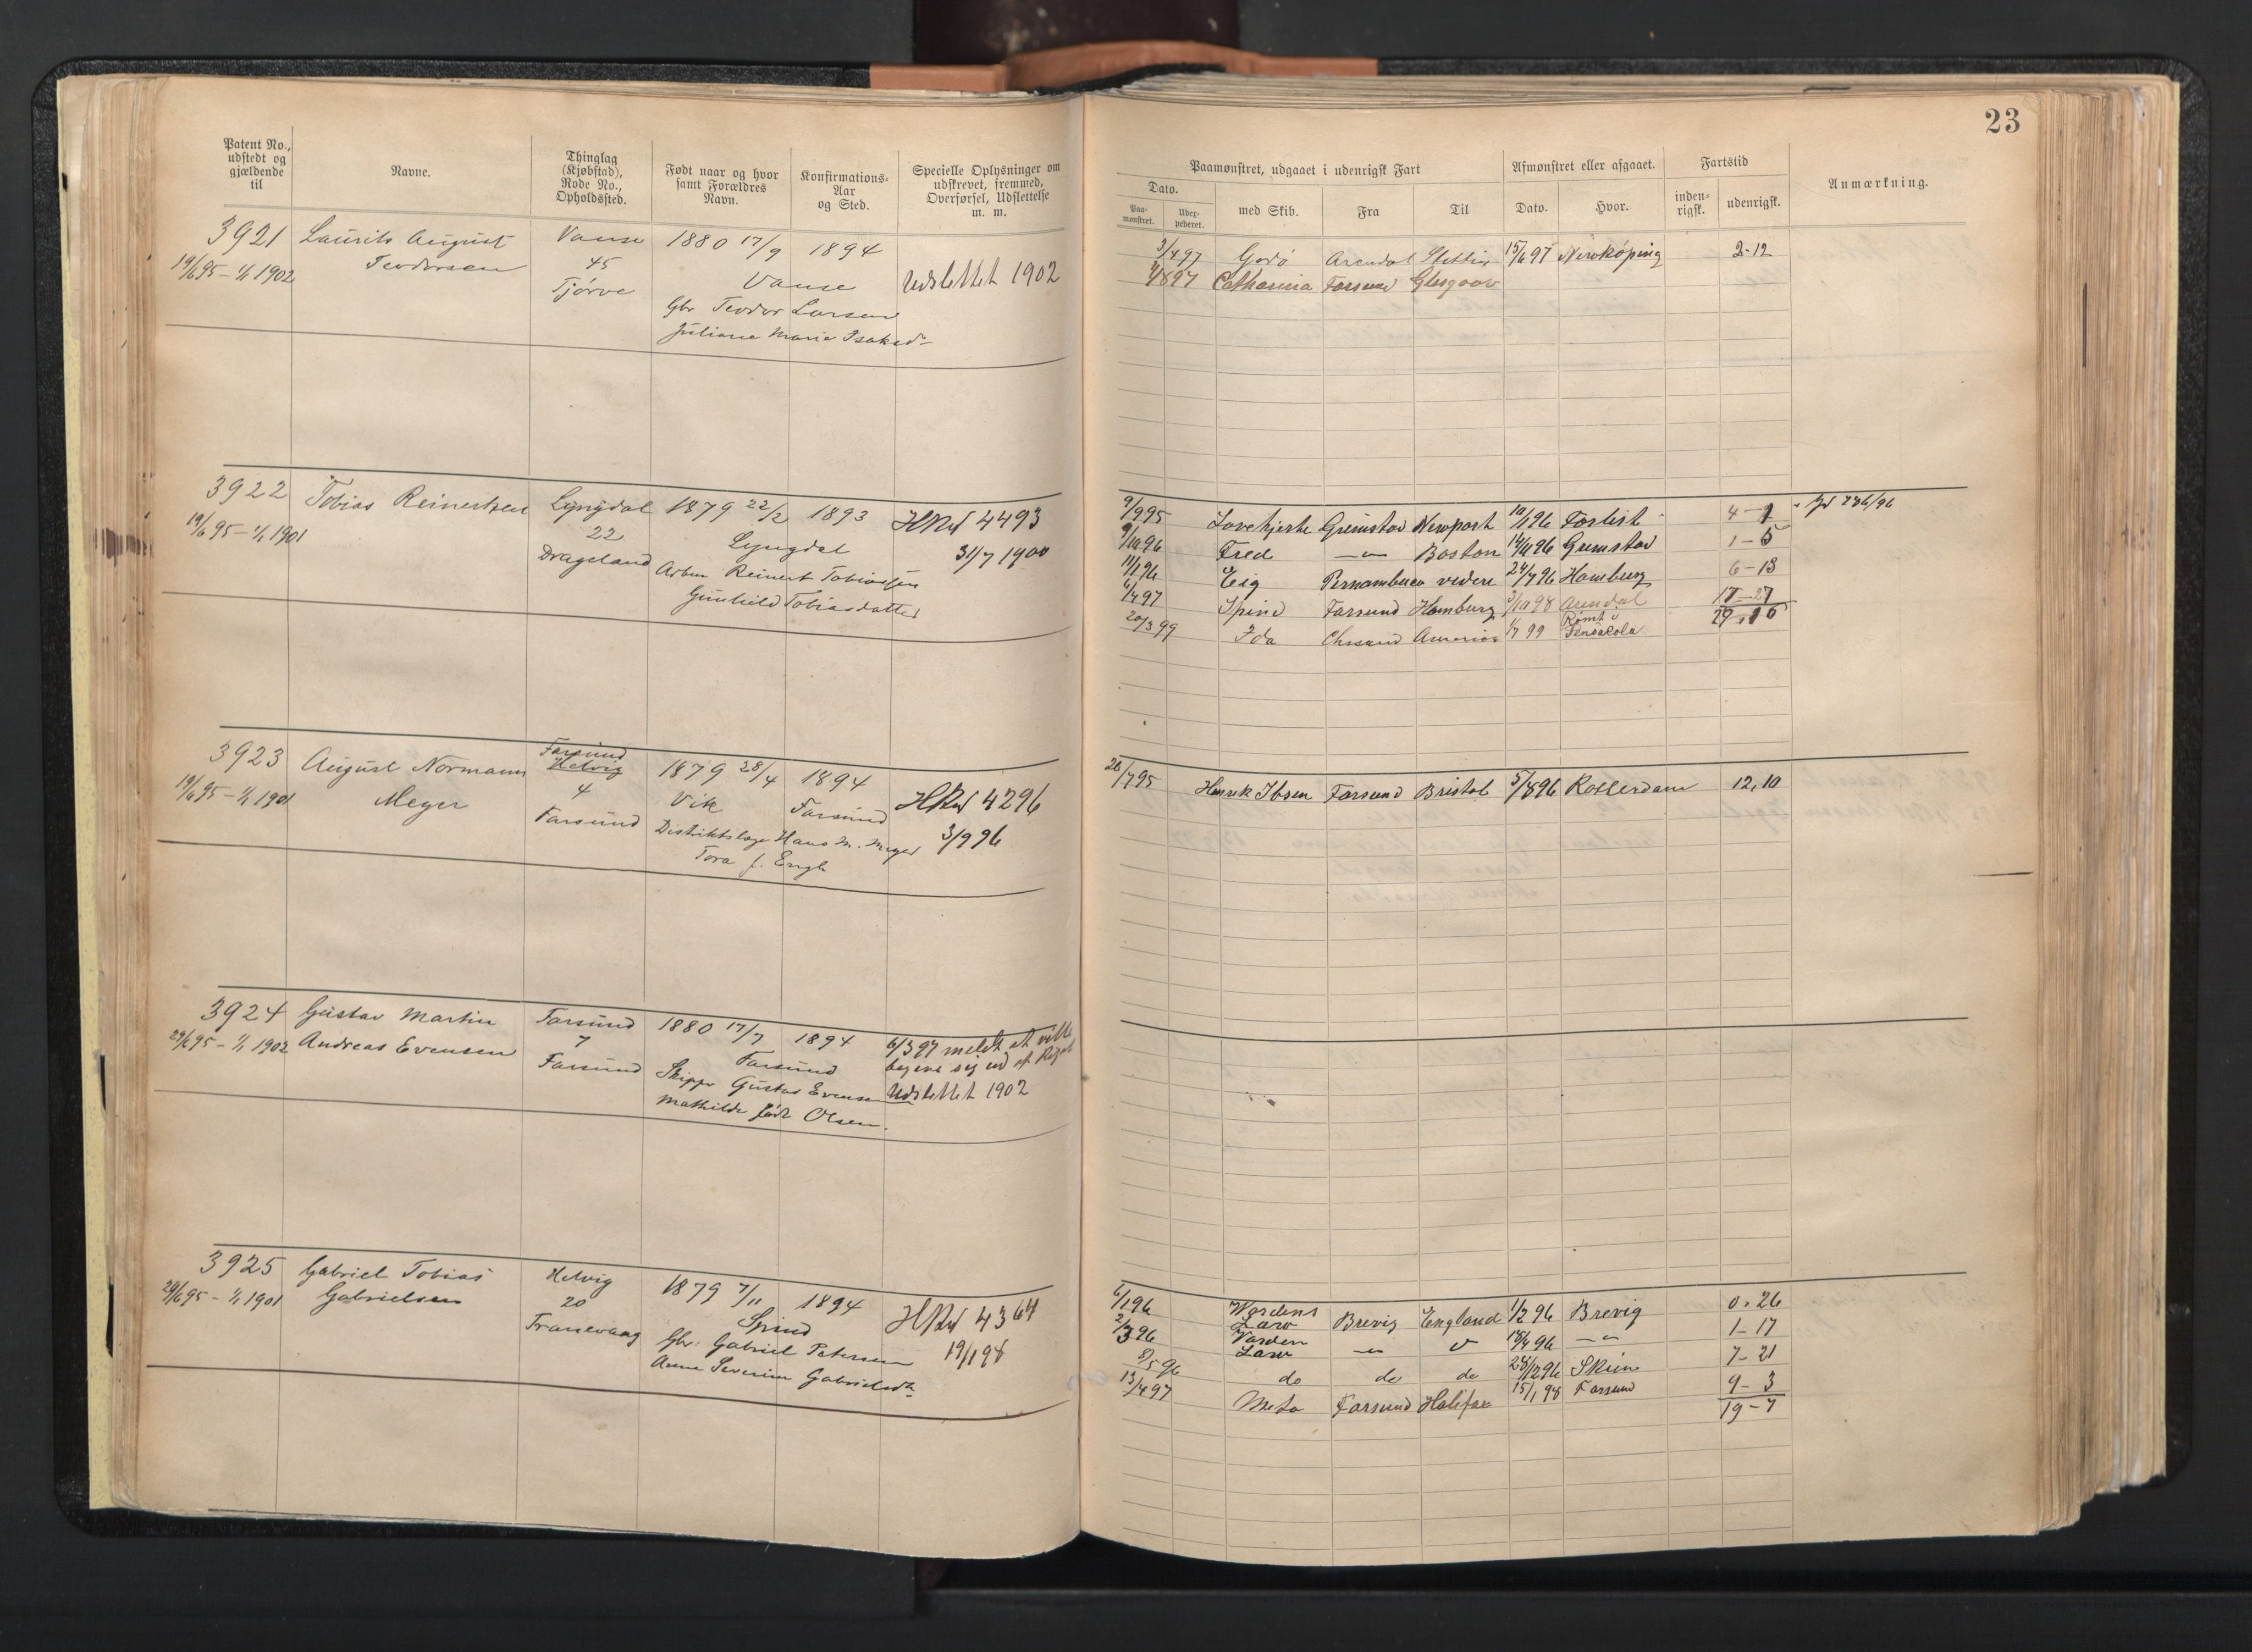 23
Patent No., udstedt og gjældende til
Navne.
Thinglag (Kjøbstad), Rode No., Opholdssted.
Født naar og hvor samt Forældres Navn.
Konfirmations-Aar og Sted.
Specielle Oplysninger om udskrevet, fremmed, Overførsel, Udslettelse m. m.
Paamønstret, udgaaet i udenrigsk Fart
Afmønstret eller afgaaet.
Fartstid
Anmærkning.
Dato.
Paa-mønstret.
Uder-pederet.
med Skib.
Fra
Til
Dato.
Hvor.
inden-rigsk.
udenrigsk.
3921 Laurits August Vanse 1880 17/9 1894
19/6 95 - 1/1 1902 Teodorsen 45 Vanse Udslettet 1902
Tjørve
Gbr Teodor Larsen
Juliane Marie Isaksd-
3/4 97 Godø Arendal Stettin 15/6 97 Nørrköping 2-12
/8 97 Catharina Farsund Glasgoow
3922 Tobias Reinertsen Lyngdal 1879 22/2 1893 HRul 4493
19/6 95 - 1/1 1901 22 Lyngdal 31/7 1900
Drageland Arbm Reinert Tobiassen
Gunhild Tobiasdatter
9/9 95 Lovehjerte Grimstad Newport 10/1 96 Forlist 4-1 Jd 736/96
9/10 96 Fred —„— Boston 14/11 96 Grimstad 1-5
11/1 96 Eig Pernambuco videre 24/7 96 Hamburg 6-13
6/4 97 Spind Farsund Hamburg 3/10 98 Arendal 17-27
29,16
20/3 99 Ida Chrsand America 1/7 99 Rømt i Pensacola
3923 August Normann Farsund Helvig 1879 28/4 1894 HRul 4296
19/6 95 - 1/1 1901 Meyer 4 Vik Farsund 3/9 96
Farsund Distriktslæge Hans M. Meyer
Tora f. Engh
26/7 95 Henrik Ibsen Farsund Bristol 5/8 96 Rotterdam 12,10
3924 Gustav Martin Farsund 1880 17/7 1894 6/3 97 meldt at ville
29/6 95 - 1/1 1902 Andreas Evensen 7 Farsund begive sig ud af Riget
Farsund Skippr Gustav Evensen Udslettet 1902
Mathilde født Olsen.
3925 Gabriel Tobias Helvig 1879 7/11 1894 HRul 4364
29/6 95 - 1/1 1901 Gabrielsen 20 Spind 19/1 98
Tranevaag Gbr. Gabriel Petersen
Anne Severine Gabrielsdt.
6/1 96 Nordens Larv Brevig England 1/2 96 Brevig 0.26
2/3 96 Norden Larv —„— 18/4 96 —„— 1-17
8/5 96 do do do 28/12 96 Skien 7-21
13/4 97 Meta Farsund Halifax 15/1 98 Farsund 9-3
19-7